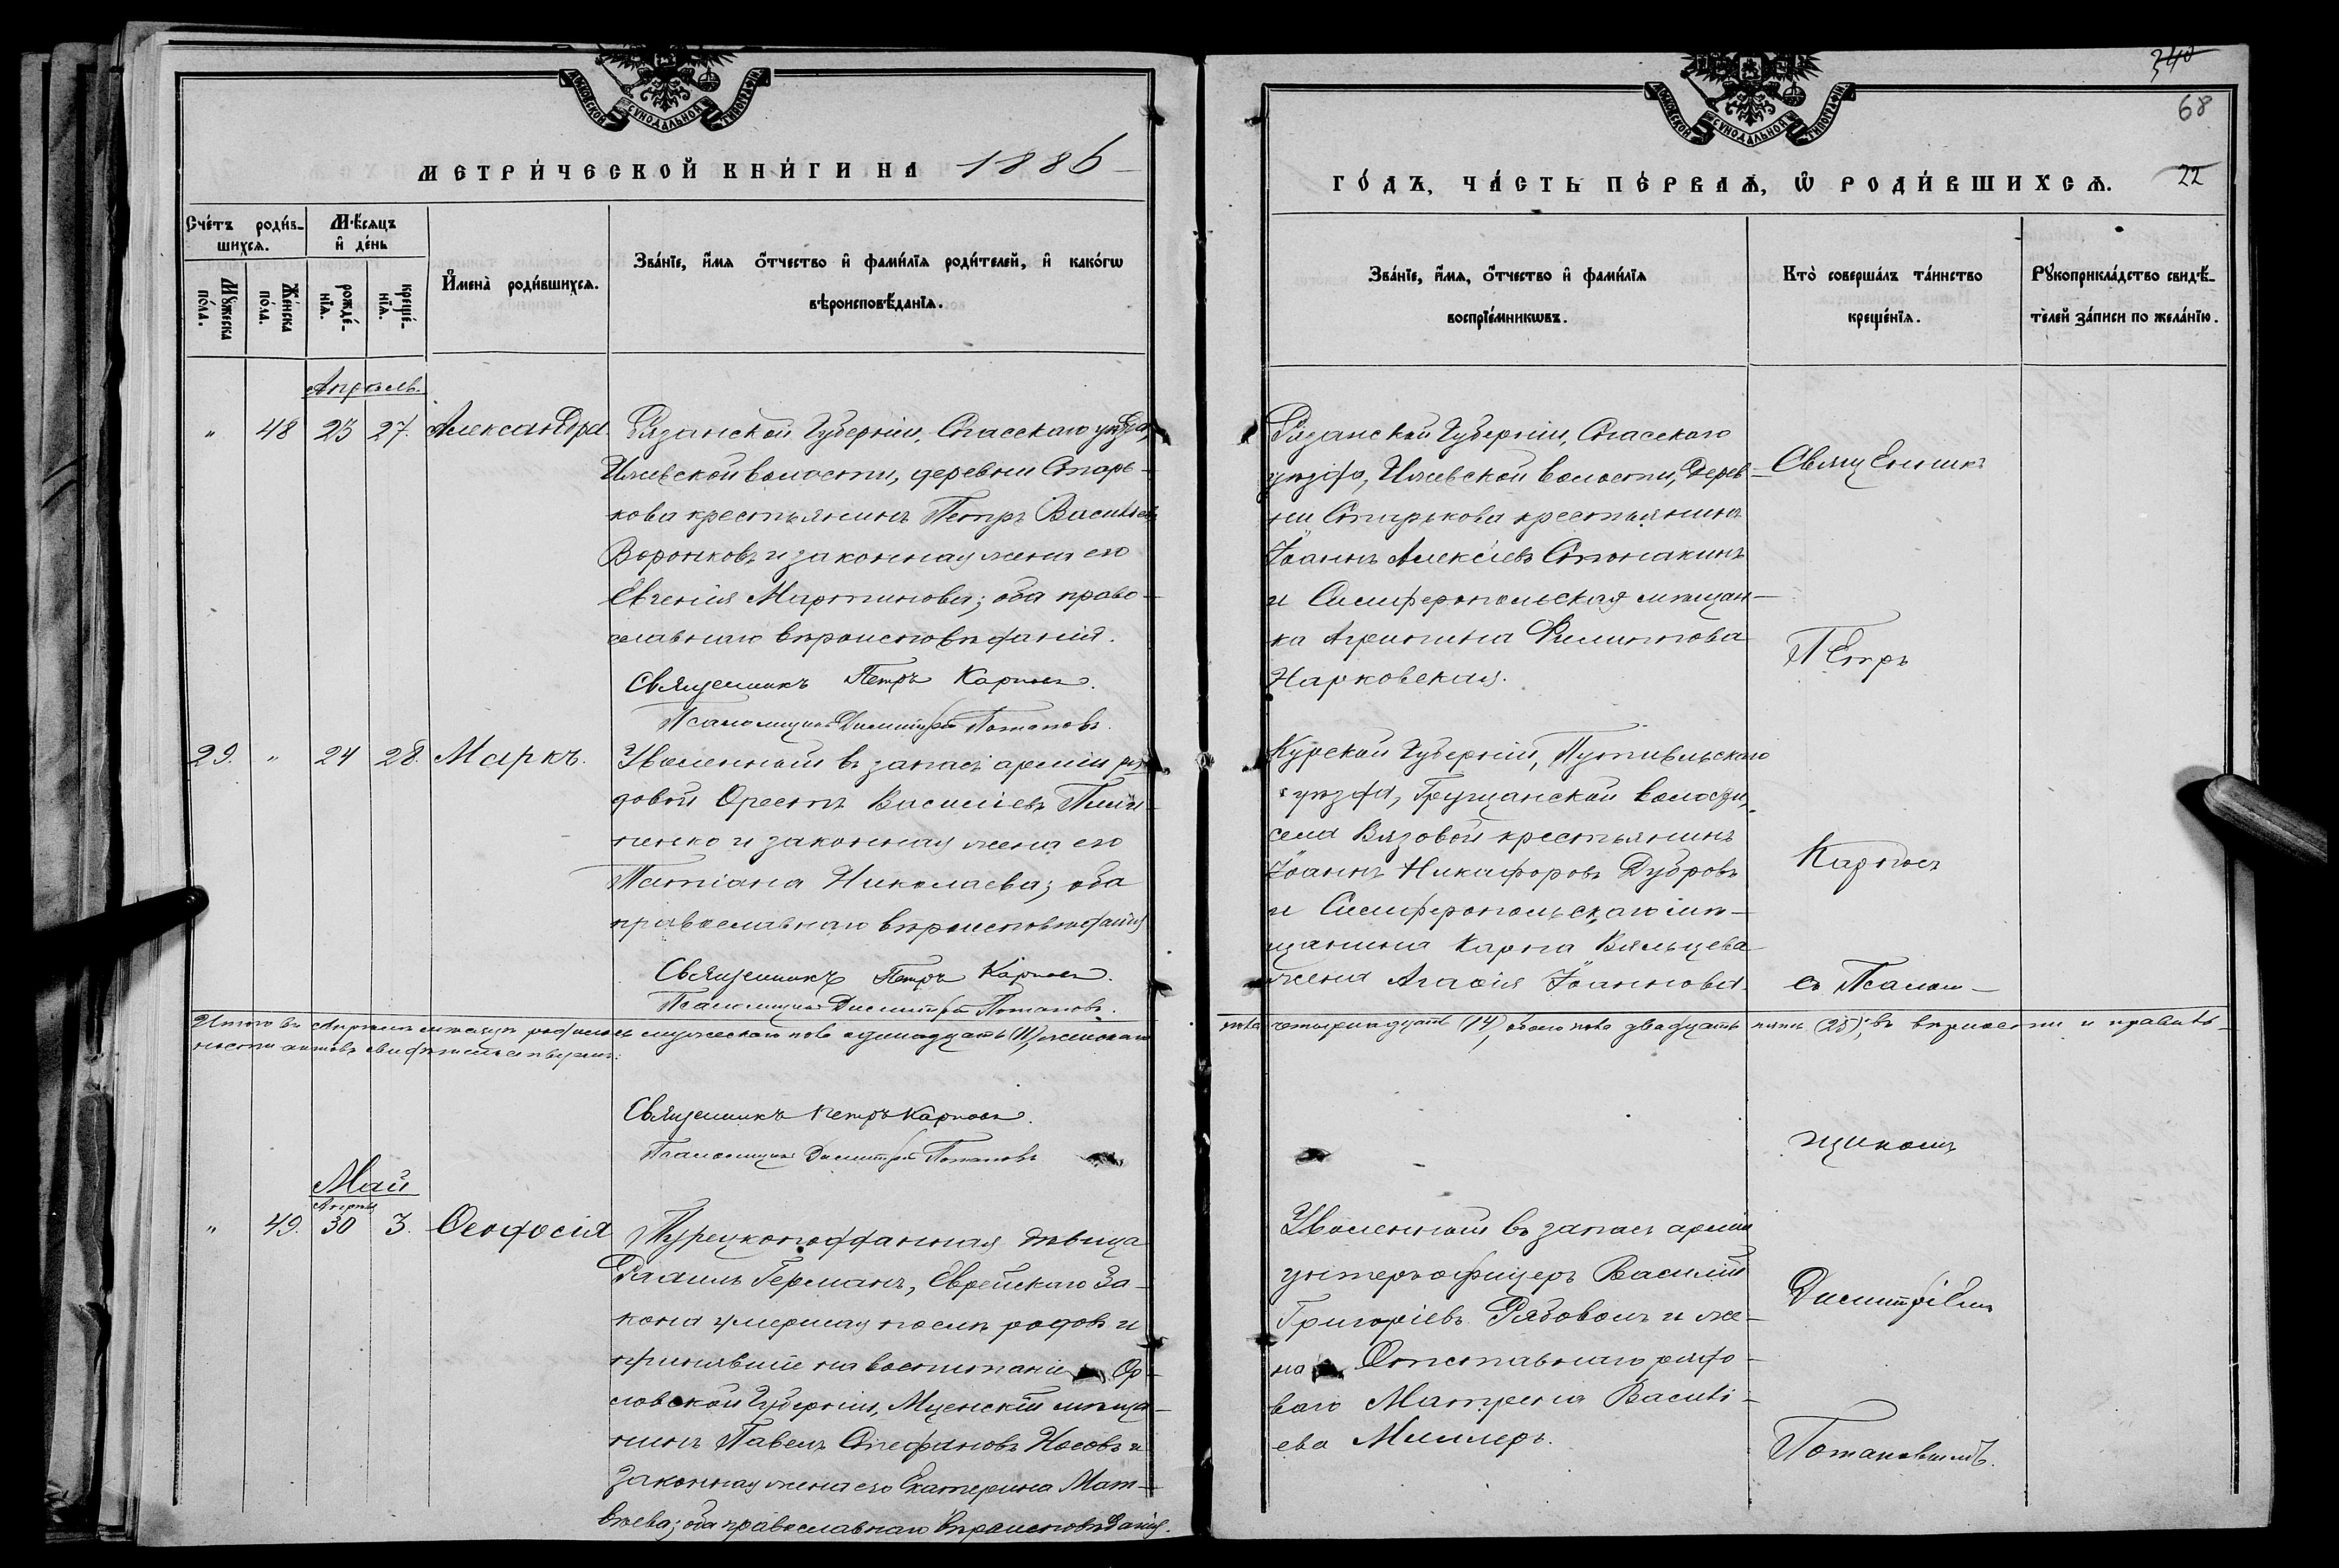 МОСКОВСКОЙ СѴНОДАЛЬНОЙ ТИПОГРАФІИ
МЕТРИ́ЧЕСКОЙ КНИ́ГИ НА 1886
Сче́тъ роди́в-
шихсѧ.
Мꙋ́жеска
по́ла.
Же́нска
по́ла.
Мѣ́сѧцъ
и҆ де́нь
рожде́-
нїѧ.
креще́-
нїѧ.
И҆мена̀ роди́вшихсѧ.
Зва́нїе, и҆́мѧ ѻ҆́тчество и҆ фами́лїѧ роди́телей, и҆ како́гѡ
вѣроисповѣ́данїѧ.
Апрѣль.
" 48 23 27. Александра.
Рязанской Губерніи, Спасскаго уѣзда,
Ижевской волости, деревни Старь-
кова крестьянинъ Петръ Васильевъ
Воронковъ и законная жена его
Евгенія Мартинова; оба право-
славнаго вѣроисповѣданія.
Священникъ Петръ Карповъ.
Псаломщикъ Димитрій Потаповъ.
29. " 24 28. Маркъ.
Уволенный въ запасъ арміи ря-
довой Орестъ Василіевъ
и законная жена его
Татіана Николаева; оба
православнаго вѣроисповѣданія
Священникъ Петръ Карповъ.
Псаломщикъ Димитрій Потаповъ.
Итого въ Апрѣлѣ мѣсяцѣ родилось мужескаго пола одинадцать (11), женскаго
ности актовъ свидѣтельствуемъ:
Священникъ Петръ Карповъ.
Псаломщикъ Димитрій Потаповъ
Май
Апрѣль
" 49. 30 3. Феодосія
Турецкоподданная дѣвица
Германъ, Еврейскаго За-
кона умершая послѣ родовъ и
принявшіе на воспитаніе Ор-
ловской Губерніи, Мценскій мѣща-
нинъ Павелъ Стефановъ Носовъ и
законная жена его Екатерина Мат-
вѣева; оба православнаго вѣроисповѣданія.
340
68
22
МОСКОВСКОЙ СѴНОДАЛЬНОЙ ТИПОГРАФІИ
ГО́ДЪ, ЧА́СТЬ ПЕ́РВАѦ, Ѡ҆ РОДИ́ВШИХСѦ.
Зва́нїе, и҆́мѧ, ѻ҆́тчество и҆ фами́лїѧ
воспрїе́мникѡвъ.
Кто̀ соверша́лъ та́инство
креще́нїѧ.
Рꙋкоприкла́дство свидѣ́-
телей за́писи по жела́нїю.
Рязанской Губерніи, Спасскаго
уѣзда, Ижевской волости, дерев-
ни Старькова крестьянинъ
Іоаннъ Алексіевъ
и Симферопольская мѣщан-
ка Агрипина Филиппова
Нарковская.
Курской Губерніи, Путивльскаго
уѣзда, Грузчанской волости,
села Вязовой крестьянинъ
Іоаннъ Никифоровъ Дубровъ
и Симферопольскаго мѣ-
щанина Карпа Вяльцева
жена Агафія Іоаннова.
пола четырнадцать (14), обоего пола двадцать пять (25); въ вѣрности и правиль-
Уволенный въ запасъ арміи
унтеръ офицеръ Василій
Григоріевъ Рябоволъ и же-
на Отставнаго рядо-
ваго Матрена Василі-
ева Миллеръ.
Священникъ
Петръ
Карповъ
съ Псалом-
щикомъ
Димитріемъ
Потаповымъ.